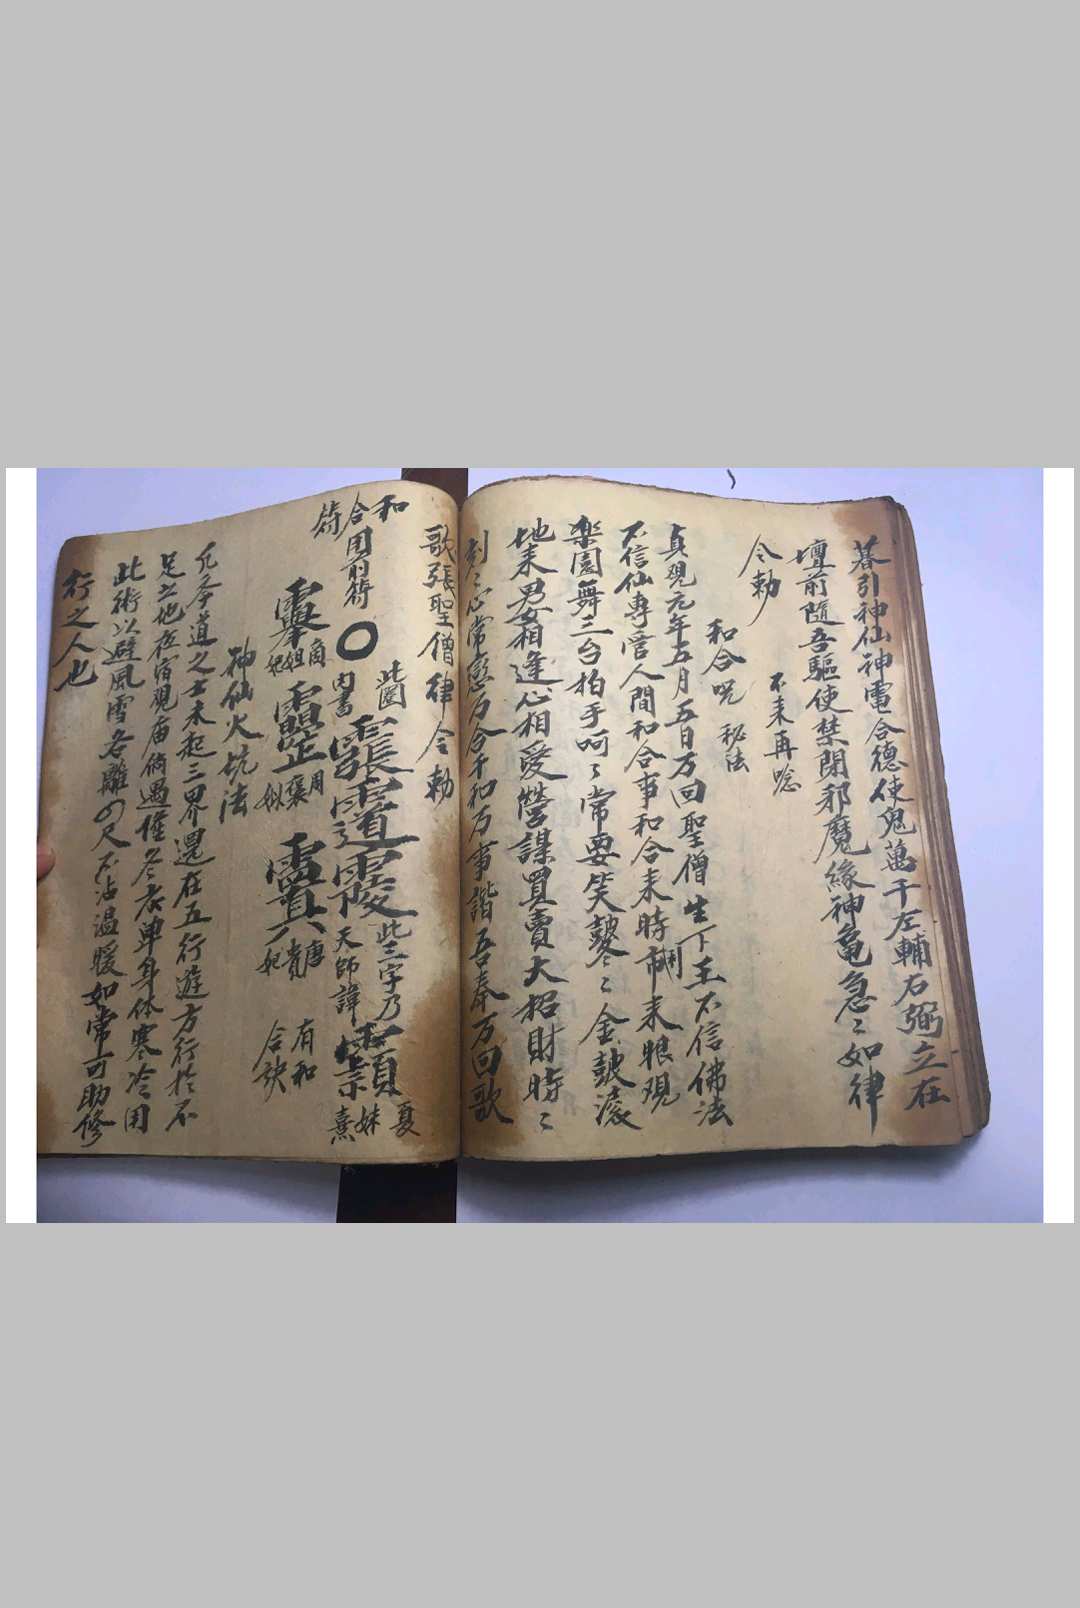 暮引神仙神電合德使鬼萬千左輔右弼立在
壇前隨吾驅使禁閉邪魔緣神龜急〻如律
令勅
不来再唸
和合咒 秘法
貞观元年五月五日万回聖僧生下土不信佛法
不信仙專管人間和合事和合来時利市来眼观
樂園舞三台拍手呵〻常要笑鼕〻金鼓滚
地来男女相逢心相愛營謀買賣大招財時〻
刻〻心常戀万合千和万事諧吾奉万回歌
歌張聖僧律令勅
和合符
用前符
此圈
内書
此三字乃
天師諱
夏妹熹
商妲妃
周褒姒
唐貴妃
有和合訣
神仙火炕法
凡夲道之士未起三界還在五行遊方行於不
足之地夜宿观庙倘遇催冬衣单身体寒冷用
此術以避風雪各離の尺不沾温暖如常可助修
行之人也